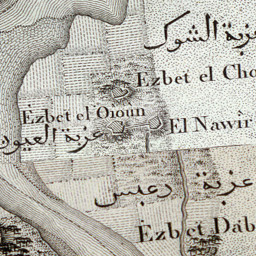 عزبة الشوك
Ezbet el Cho
Ezbet el Oïoùn
عزبة العيون
El Nawîr
عزبة دعبس
Ezbet Dab